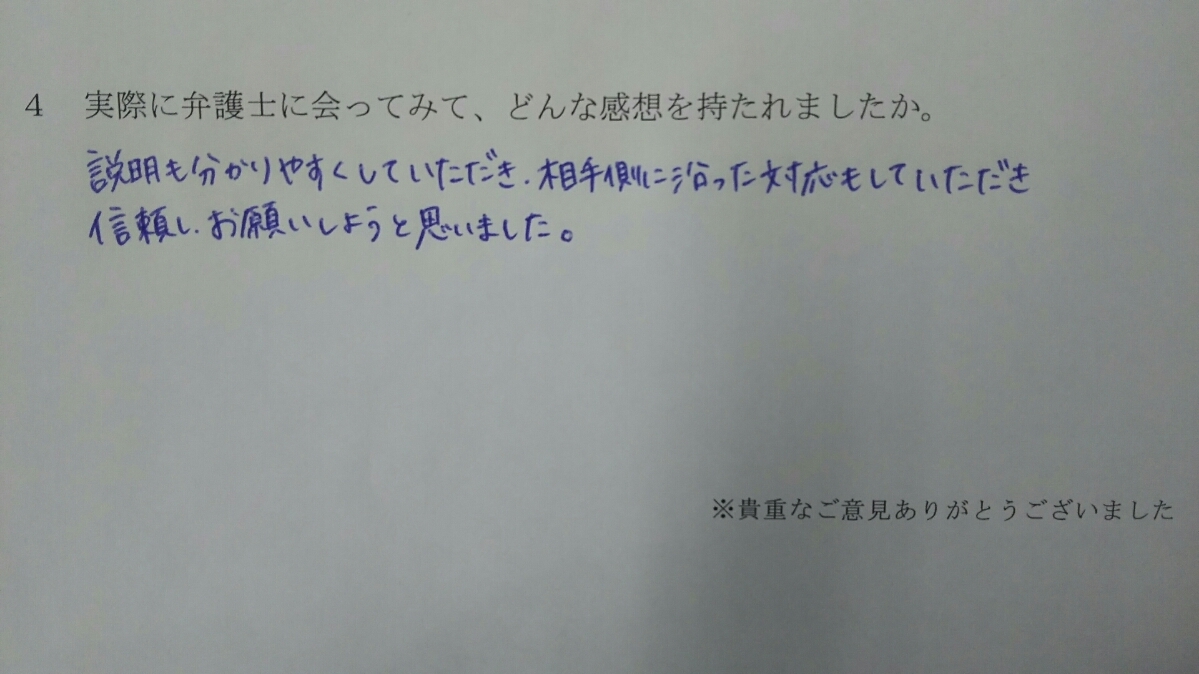 4 実際に弁護士に会ってみて、どんな感想を持たれましたか。
説明も分かりやすくしていただき、相手側に沿った対応もしていただき
信頼し、お願いしようと思いました。
※貴重なご意見ありがとうございました